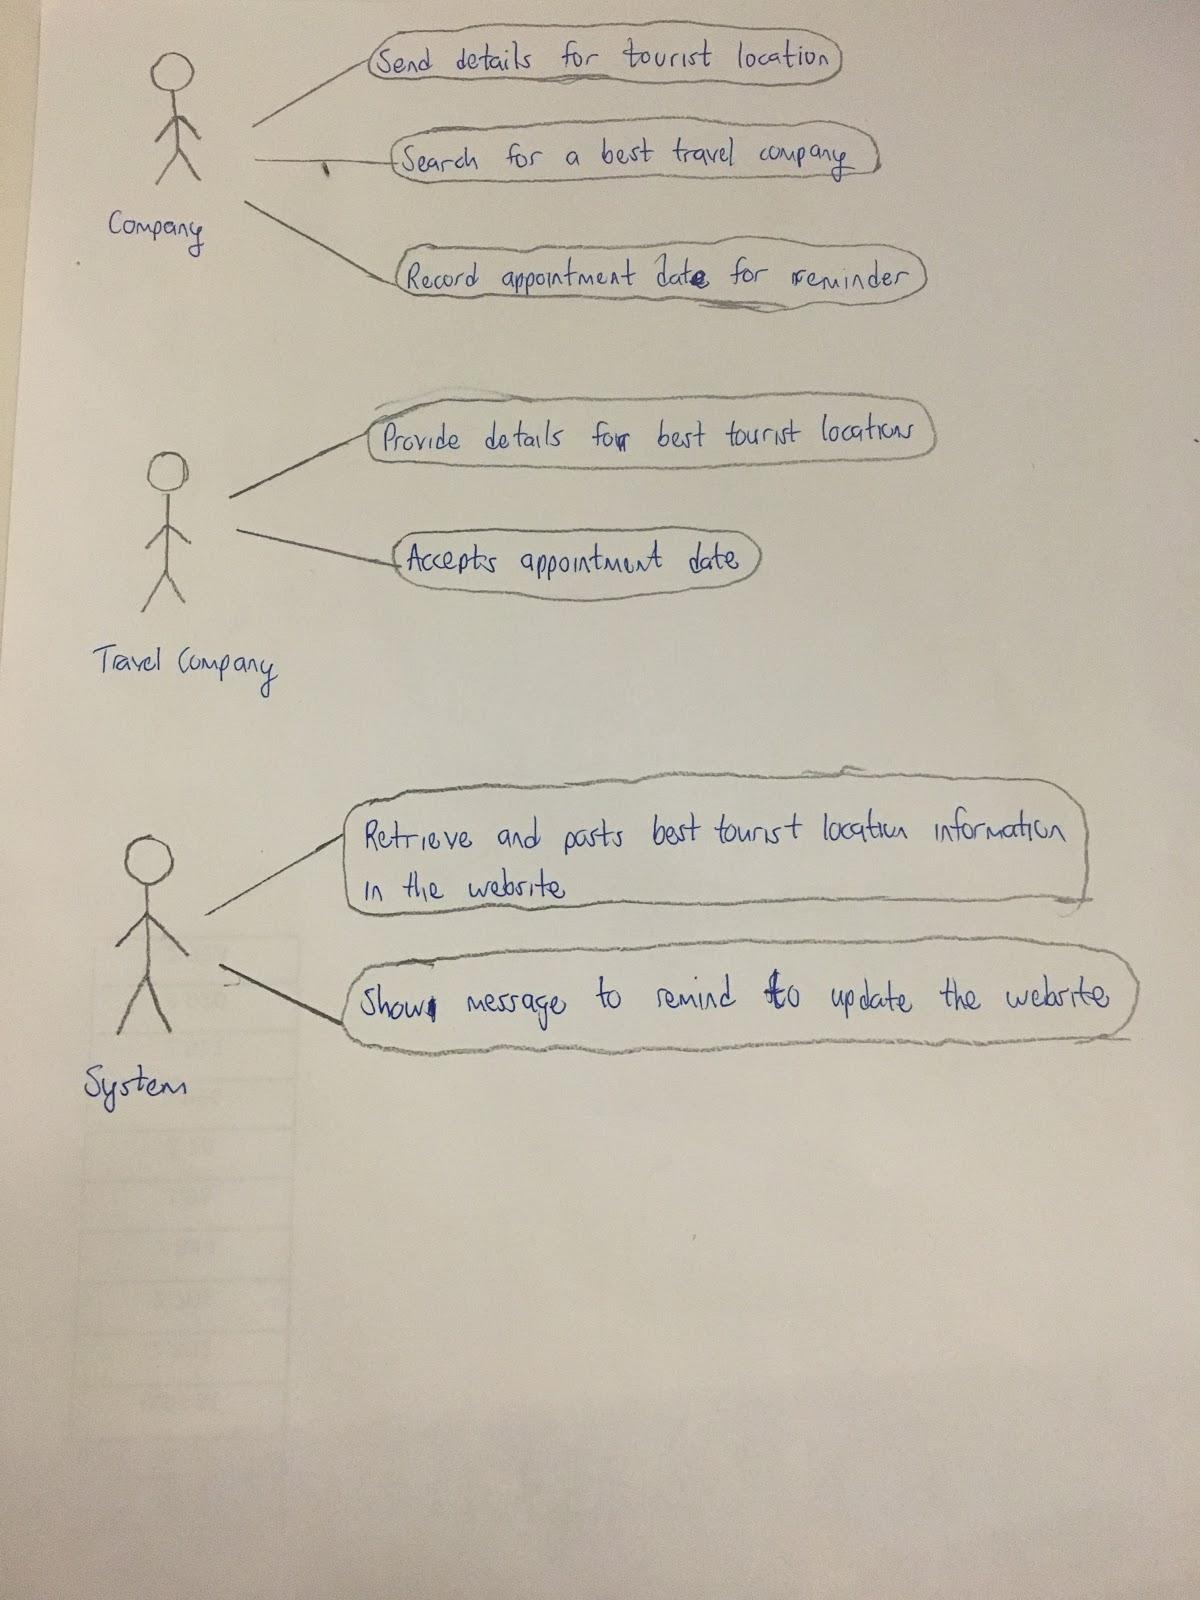 Send details for tourist location
Search for a best travel company
Record appointment date for reminder
Company
Provide details for best tourist locations
Accepts appointment date
Travel Company
Retrieve and posts best tourist location information
in the website
Show message to remind to update the website
System